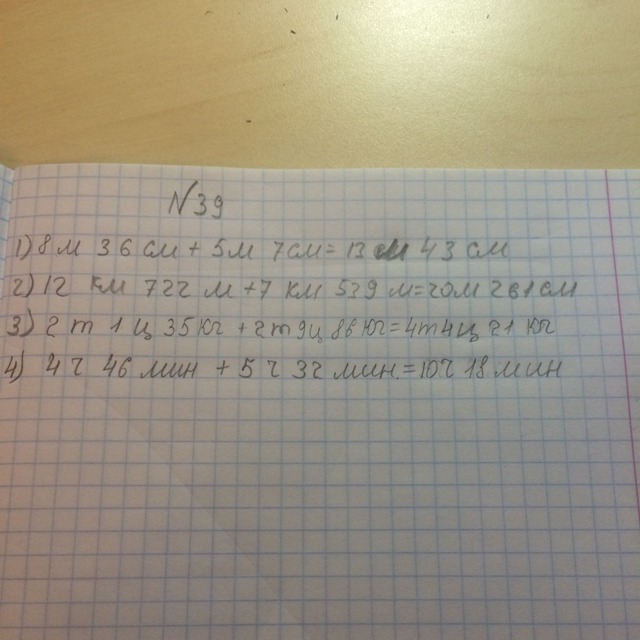 №39
1) 8 м 36 см + 5 м 7 см = 13 м 43 см
2) 12 км 722 м + 7 км 539 м = 20 м 261 см
3) 2 т 1 ц 35 кг + 2 т 9 ц 86 кг = 4 т 4 ц 21 кг
4) 4 ч 46 мин + 5 ч 32 мин. = 10 ч 18 мин